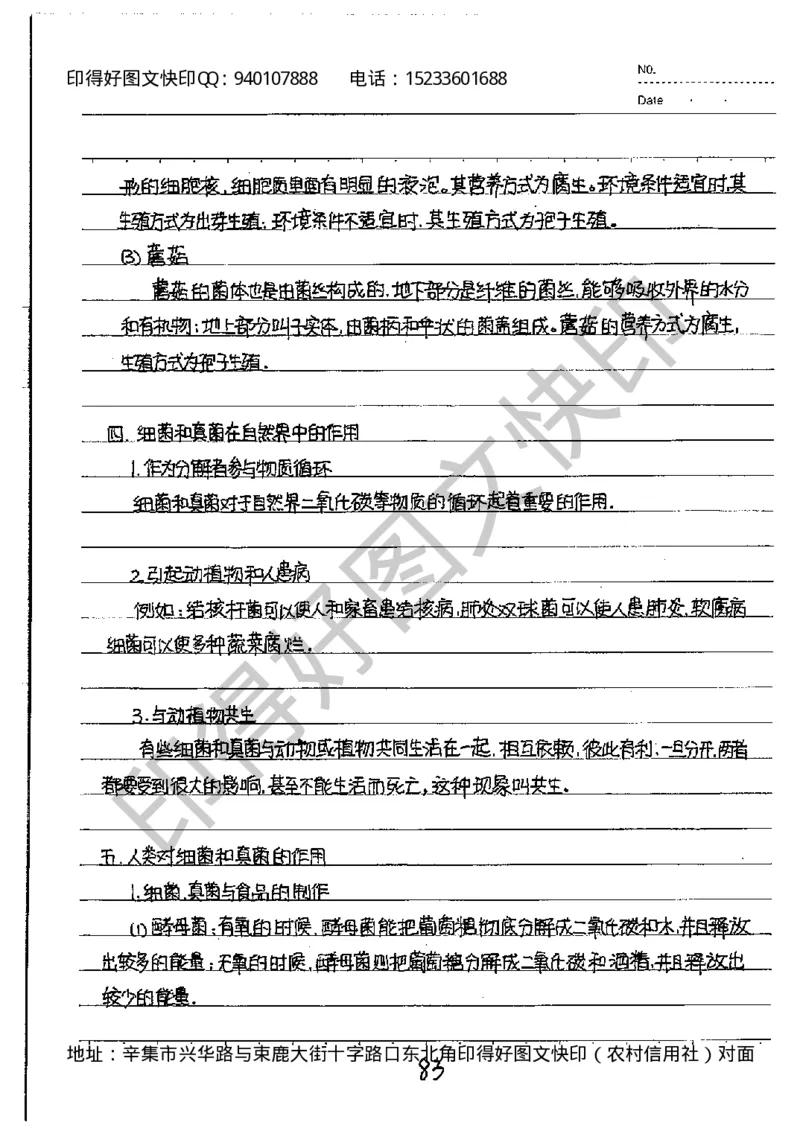 印得好图文快印QQ：940107888 电话：15233601688
NO.
Date
形的细胞核，细胞质里面有明显的液泡。其营养方式为腐生。环境条件适宜时，其
生殖方式为出芽生殖；环境条件不适宜时，其生殖方式为孢子生殖。
(3) 蘑菇
蘑菇的菌体也是由菌丝构成的，地下部分是纤维的菌丝，能够吸收外界的水分
和有机物；地上部分叫子实体，由菌柄和伞状的菌盖组成。蘑菇的营养方式为腐生，
生殖方式为孢子生殖.
四. 细菌和真菌在自然界中的作用
1. 作为分解者参与物质循环
细菌和真菌对于自然界二氧化碳等物质的循环起着重要的作用.
2. 引起动植物和人患病
例如：结核杆菌可以使人和家畜患结核病，肺炎双球菌可以使人患肺炎，软腐病
细菌可以使多种蔬菜腐烂.
3. 与动植物共生
有些细菌和真菌与动物或植物共同生活在一起，相互依赖，彼此有利，一旦分开，两者
都要受到很大的影响，甚至不能生活而死亡，这种现象叫共生。
五. 人类对细菌和真菌的作用
1. 细菌、真菌与食品的制作
(1) 酵母菌：有氧的时候，酵母菌能把葡萄糖彻底分解成二氧化碳和水，并且释放
出较多的能量；无氧的时候，酵母菌则把葡萄糖分解成二氧化碳和酒精，并且释放出
较少的能量.
地址：辛集市兴华路与束鹿大街十字路口东北角印得好图文快印（农村信用社）对面
83
印得好图文快印